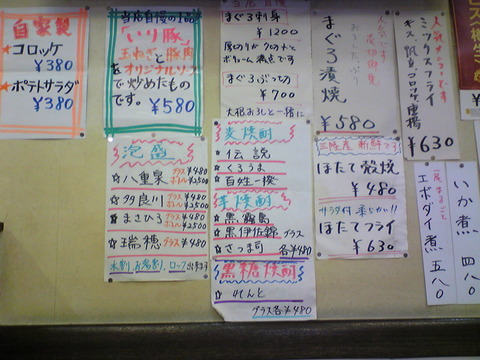 自家製
★コロッケ
¥380
★ポテトサラダ
¥380
当店自慢の一品
「いり豚」
玉ねぎと豚肉
をオリジナルソース
で炒めたもの
です。¥580
まぐろ刺身
¥1200
厚切り
ボリューム満点です
まぐろぶつ切
¥700
大根おろしと一緒に
まぐろ漬焼
¥580
人気メニューです
ミックスフライ
キス、帆立、コロッケ
¥630
泡盛
☆八重泉 グラス¥480
ボトル¥2500
☆多良川 グラス¥480
ボトル¥2500
☆まさひろ グラス¥480
☆瑞穂 グラス¥480
水割、お湯割、ロック
麦焼酎
☆伝説
☆くろうま
☆百姓一揆
芋焼酎
☆黒霧島
☆黒伊佐錦 グラス
☆さつま司 各¥480
黒糖焼酎
☆れんと
グラス各¥480
三陸産 新鮮です
ほたて殻焼
¥480
サラダ付
ほたてフライ
¥630
いか煮 四八〇
エボダイ煮 五八〇